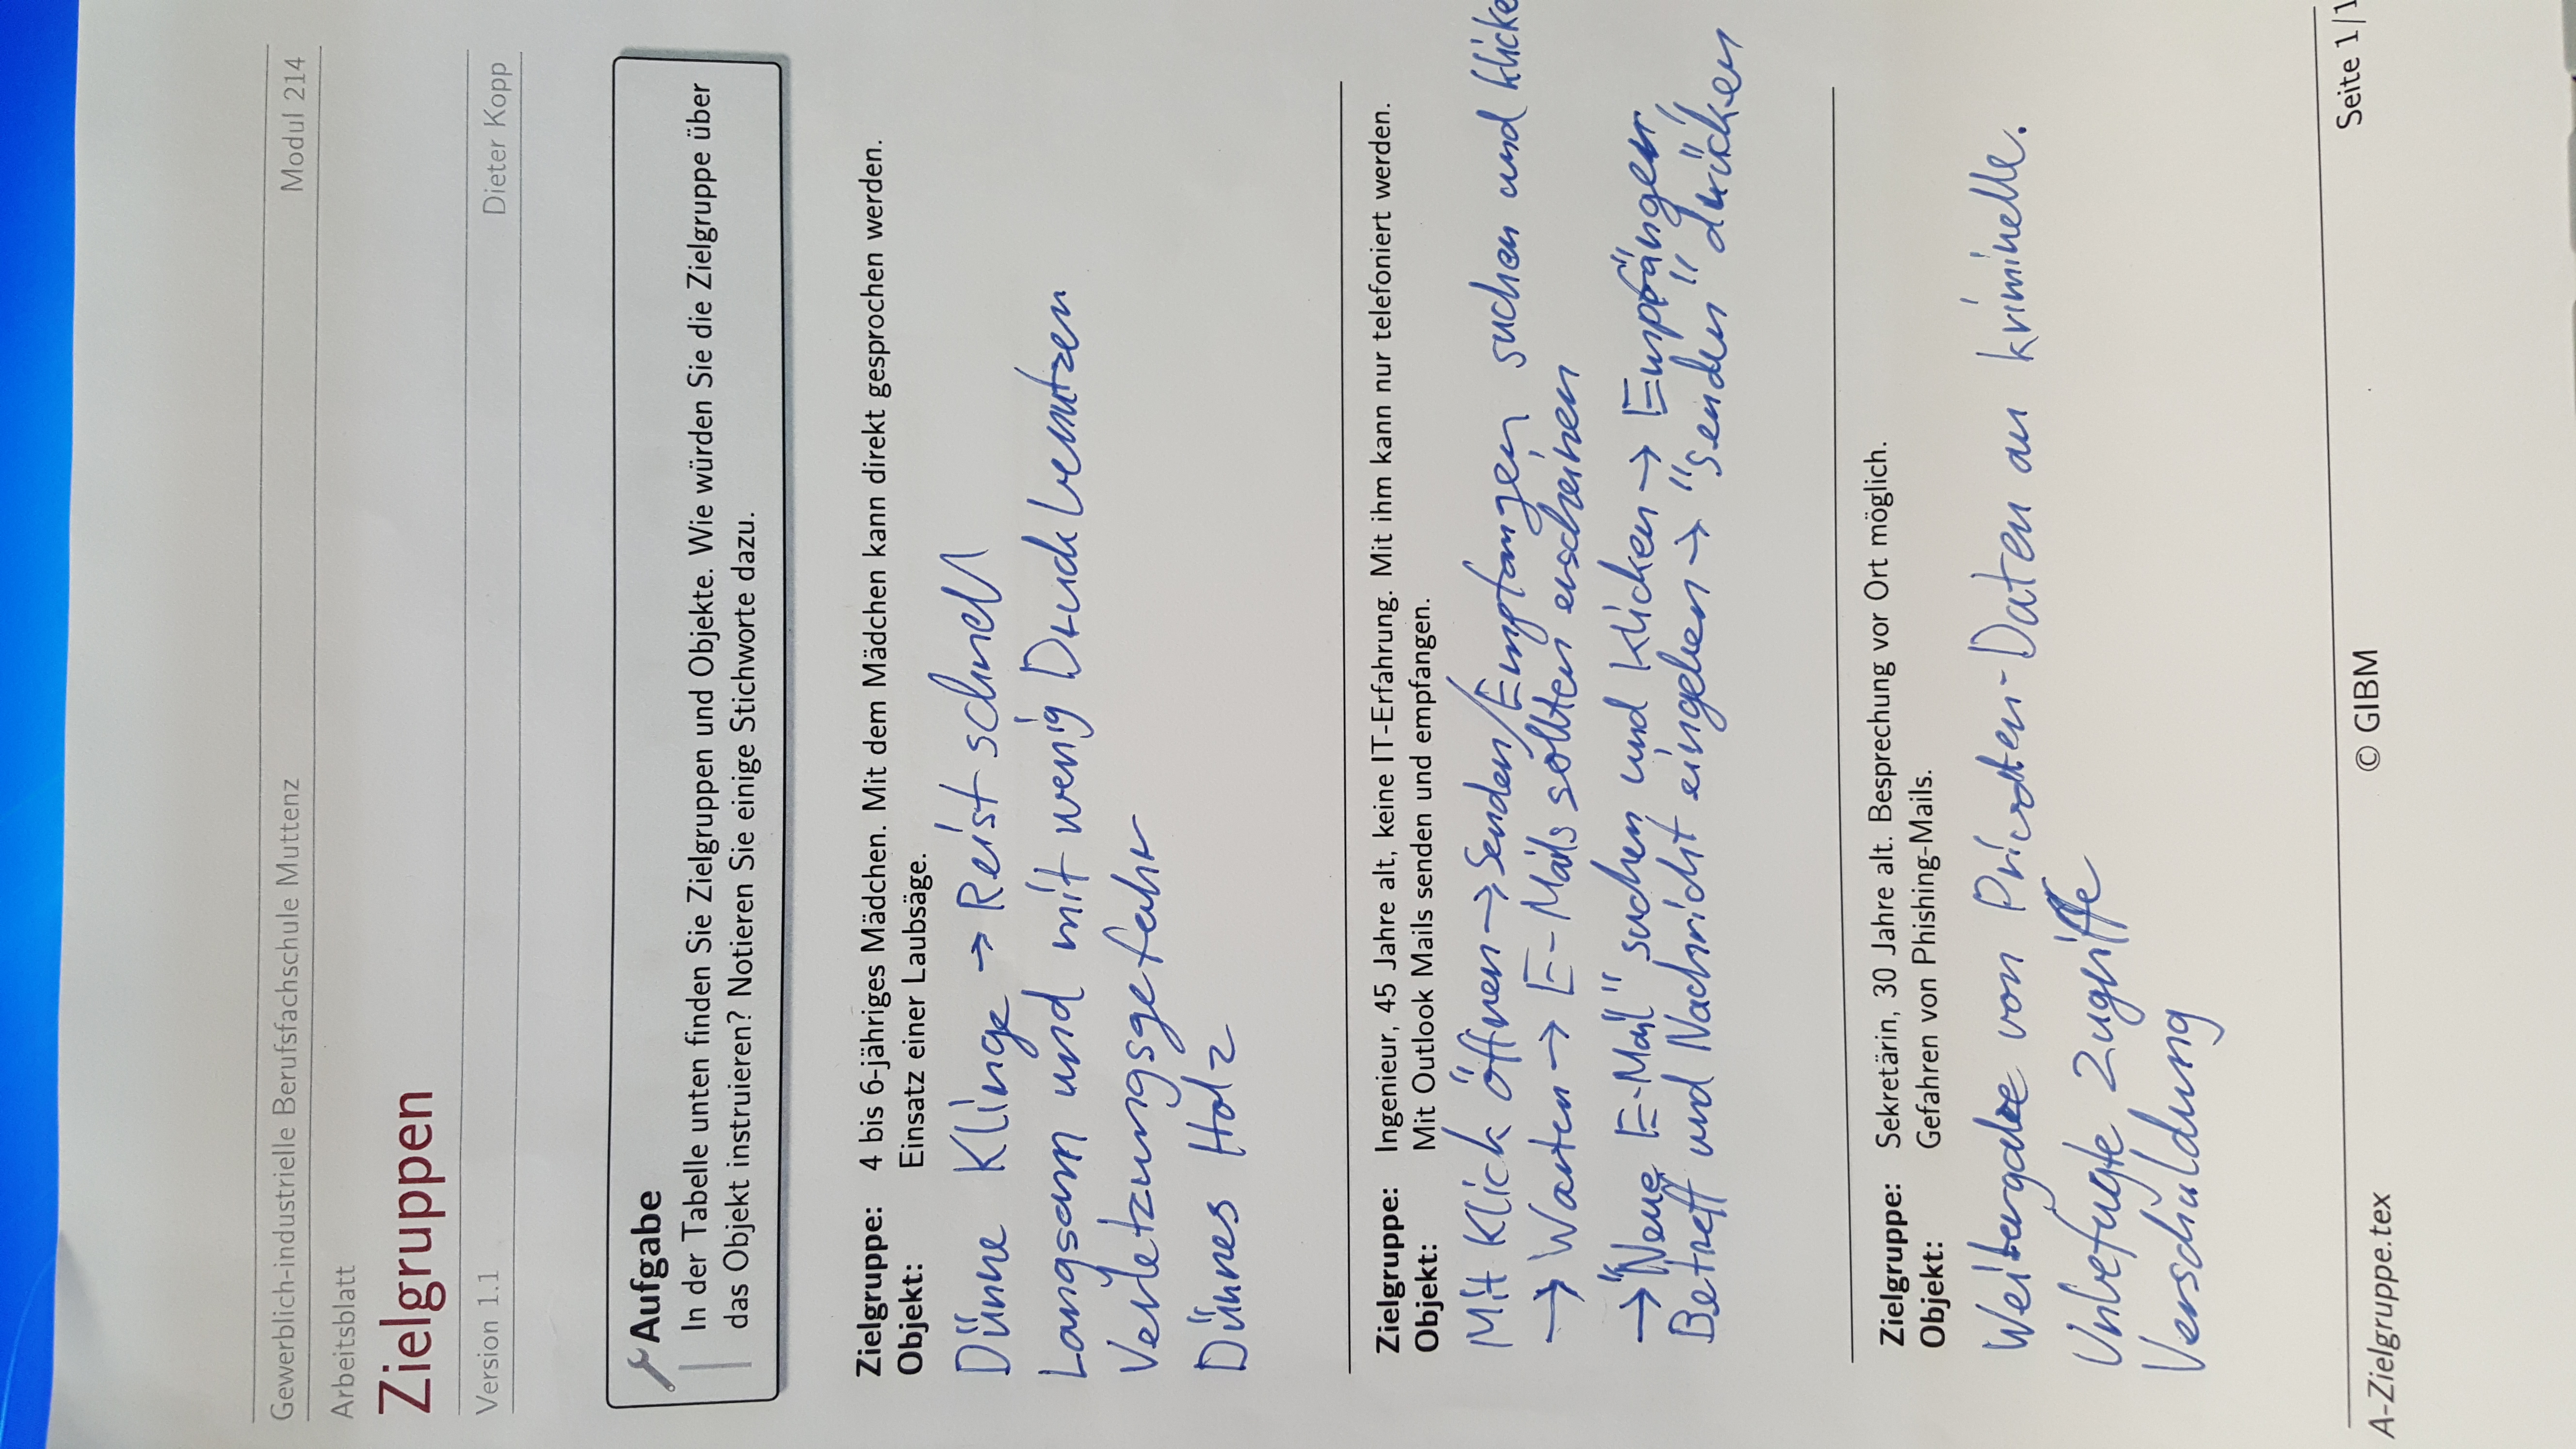 Gewerblich-industrielle Berufsfachschule Muttenz Modul 214
Arbeitsblatt
Zielgruppen
Version 1.1 Dieter Kopp
Aufgabe
In der Tabelle unten finden Sie Zielgruppen und Objekte. Wie würden Sie die Zielgruppe über
das Objekt instruieren? Notieren Sie einige Stichworte dazu.
Zielgruppe: 4 bis 6-jähriges Mädchen. Mit dem Mädchen kann direkt gesprochen werden.
Objekt: Einsatz einer Laubsäge.
Dünne Klinge → Reist schnell
Langsam und mit wenig Druck benutzen
Verletzungsgefahr
Dünnes Holz
Zielgruppe: Ingenieur, 45 Jahre alt, keine IT-Erfahrung. Mit ihm kann nur telefoniert werden.
Objekt: Mit Outlook Mails senden und empfangen.
Mit Klick öffnen → Senden/Empfangen suchen und klicke
→ Warten → E-Mails sollten erscheinen
→ "Neue E-Mail" suchen und klicken → Empfänger,
Betreff und Nachricht eingeben → "senden" drücken
Zielgruppe: Sekretärin, 30 Jahre alt. Besprechung vor Ort möglich.
Objekt: Gefahren von Phishing-Mails.
Weitergabe von Privaten-Daten an kriminelle.
Unbefugte Zugriffe
Verschuldung
A-Zielgruppe.tex © GIBM Seite 1/1